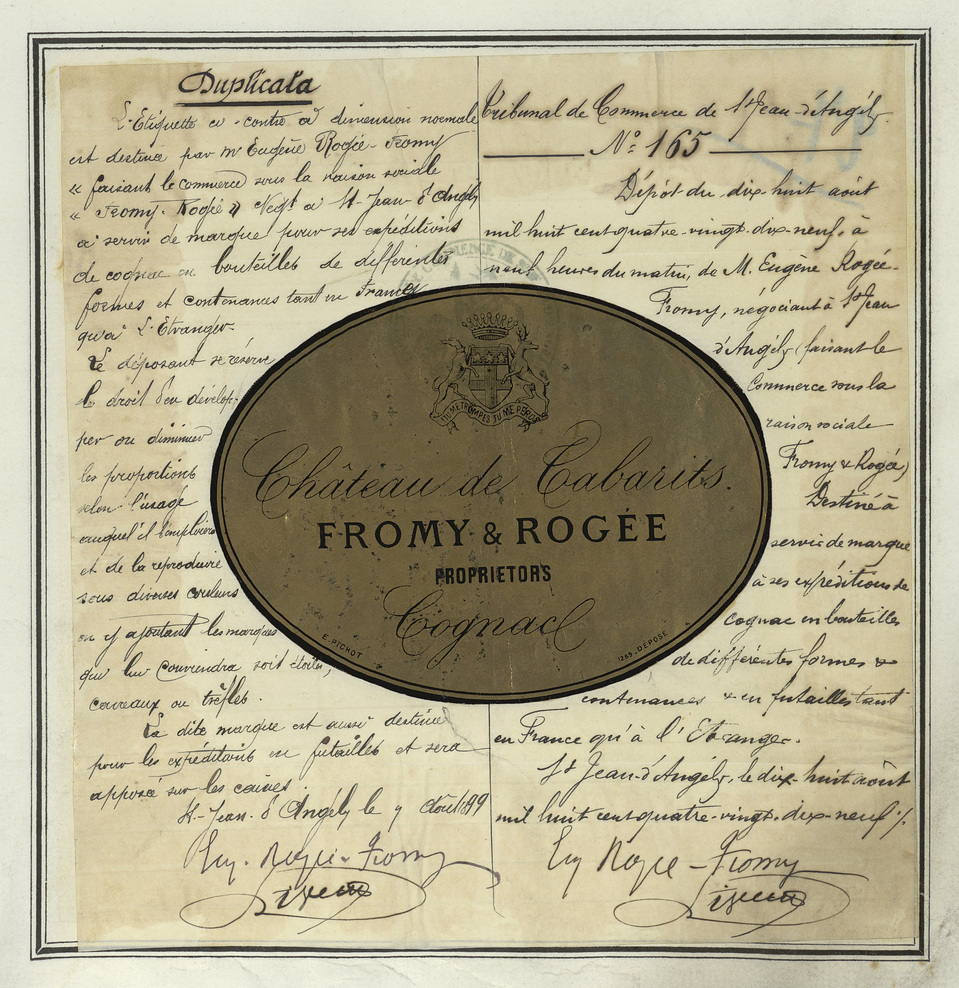 Duplicata
L'Etiquette ci-contre à dimension normale
est destinée par Mr Eugène Rogée-Fromy
« faisant le commerce sous la raison sociale
« Fromy-Rogée » Negt à St-Jean-d'Angély
à servir de marque pour ses expéditions
de cognac en bouteilles de différentes
formes et contenances tant en France
qu'à L'Etranger.
Le déposant se réserve
le droit d'en dévelop-
per ou diminuer
les proportions
selon l'usage
auquel il l'emploiera
et de la reproduire
sous diverses couleurs
en y ajoutant les marques
qui lui conviendra soit étoiles,
carreaux ou trèfles.
La dite marque est aussi destinée
pour les expéditions en futailles et sera
apposée sur les caisses.
St-Jean-d'Angély le 7 Août 1899
Eug. Rogée-Fromy
Tribunal de Commerce de St Jean-d'Angély.
N° 165
Dépôt du dix-huit août
mil huit cent quatre-vingt-dix-neuf, à
neuf heures du matin, de M. Eugène Rogée-
Fromy, négociant à St Jean
d'Angély (faisant le
Commerce sous la
raison sociale
Fromy & Rogée)
Destiné à
servir de marque
à ses expéditions de
cognac en bouteilles
de différentes formes &
contenances & en futailles tant
en France qu'à l'Etranger.
St Jean-d'Angély, le dix-huit août
mil huit cent quatre-vingt-dix-neuf ./.
Eug Rogée-Fromy
TU ME TROMPES TU ME PERDS
Château de Tabarits.
FROMY & ROGÉE
PROPRIETOR'S
Cognac
E. PICHOT
1269. DÉPOSÉ